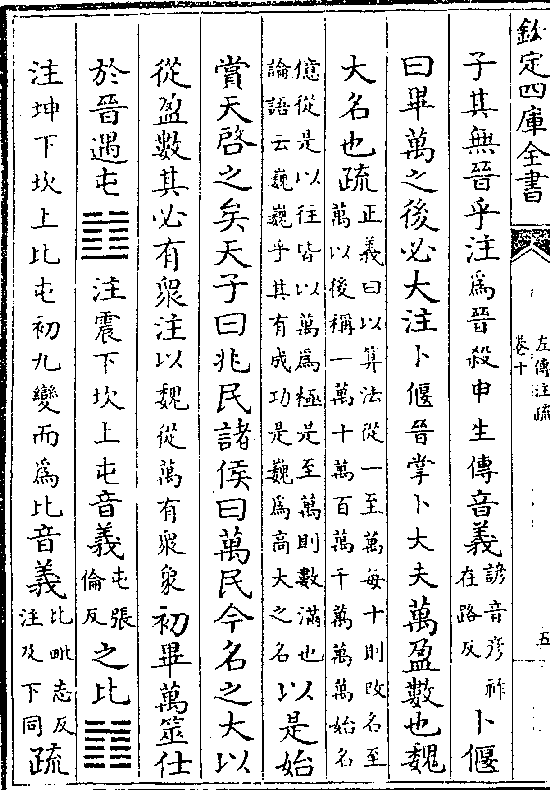 欽定四庫全書
左傳注疏
卷十
五
子其無晉乎注為晉殺申生傳音義諺音彦祚在路反卜偃
曰畢萬之後必大注卜偃晉掌卜大夫萬盈數也魏
大名也疏正義曰以算法從一至萬每十則改名至萬以後稱一萬十萬百萬千萬萬萬始名
億從是以往皆以萬為極是至萬則數滿也論語云巍巍乎其有成功是巍為高大之名以是始
賞天啓之矣天子曰兆民諸侯曰萬民今名之大以
從盈數其必有衆注以魏從萬有衆象初畢萬筮仕
於晉遇屯䷂注震下坎上屯音義屯張倫反之比䷇
注坤下坎上比屯初九變而為比音義比毗志反注及下同疏